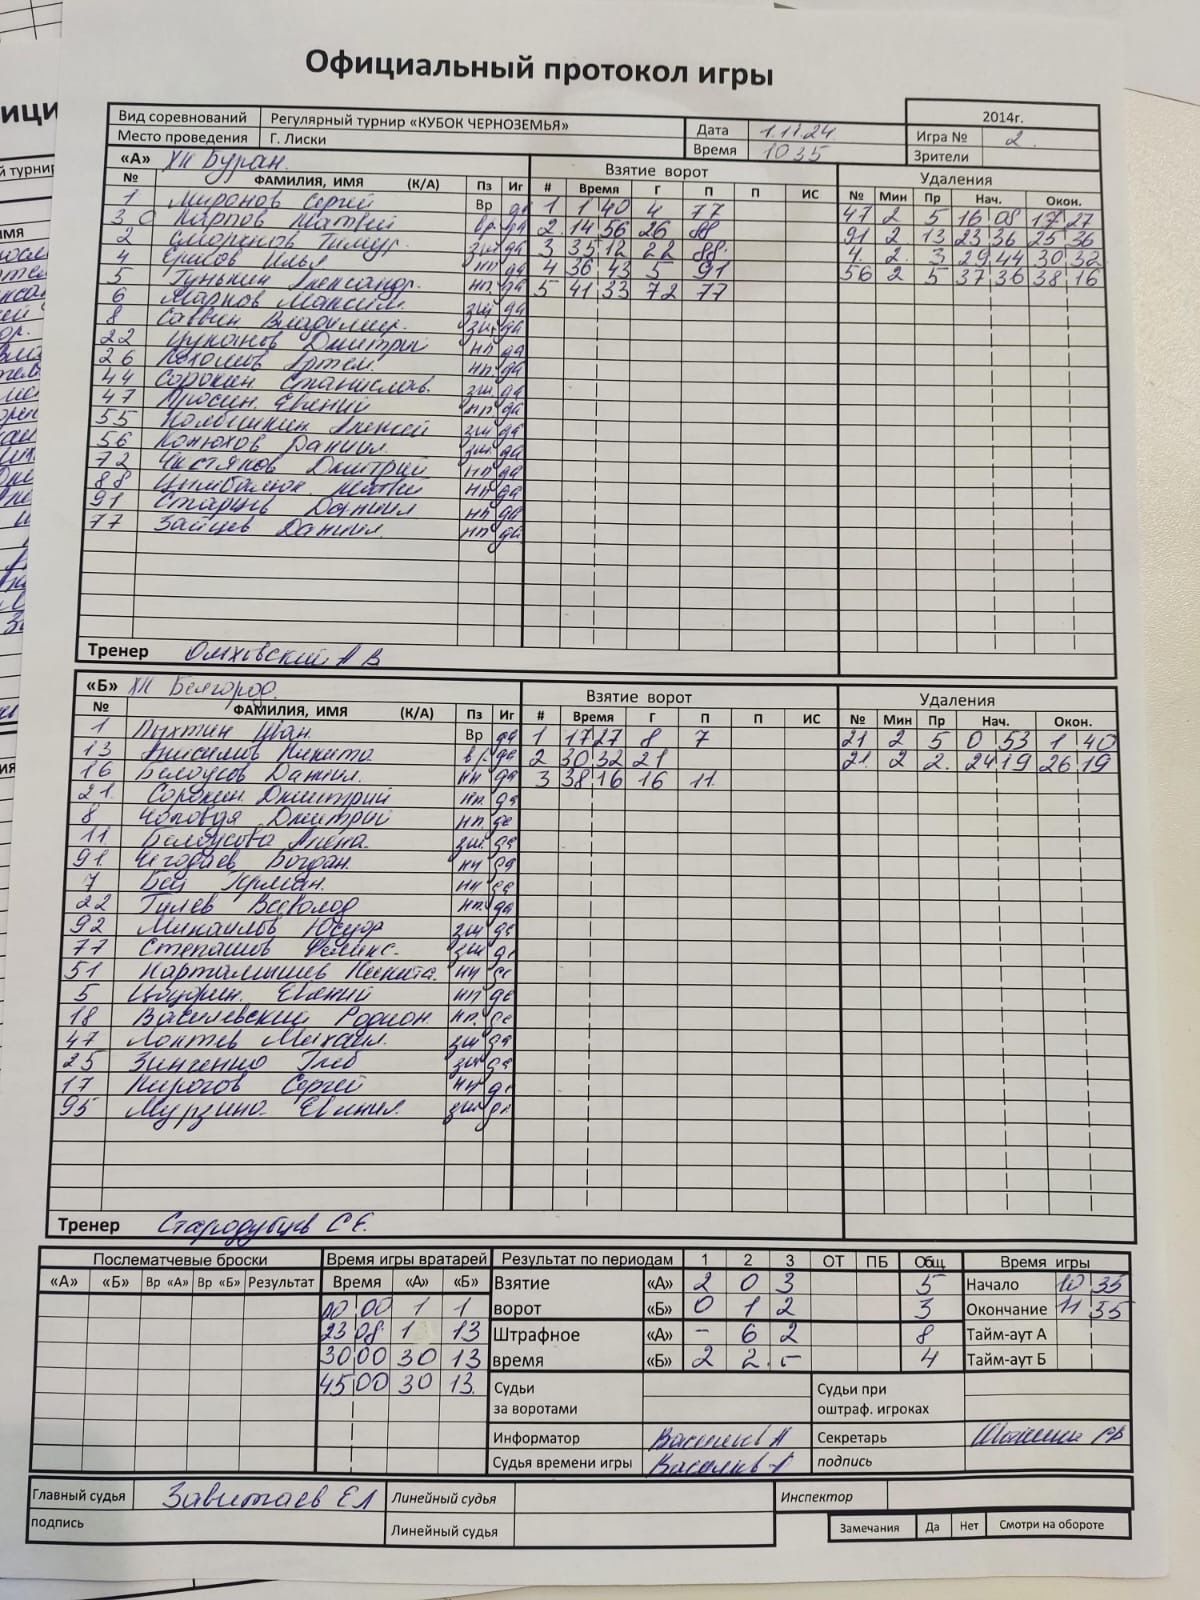 Официальный протокол игры
2014г.
Вид соревнований Регулярный турнир «КУБОК ЧЕРНОЗЕМЬЯ» Дата 1.11.24 Игра № 2
Место проведения Г. Лиски Время 10 35 Зрители
«А» ХК Буран. Взятие ворот Удаления
№ ФАМИЛИЯ, ИМЯ (К/А) Пз Иг # Время Г П П ИС № Мин Пр Нач. Окон.
1 Миронов Сергей Вр да 1 1 40 4 77 47 2 5 16 08 17 27
30 Карпов Матвей вр. да 2 14 56 26 88 91 2 13 23 36 25 36
2 Тимур. зщ да 3 35 12 22 88. 4. 2. 3 29 44 30 32
4 Илья нп да 4 36 43 5 91 56 2 5 37 36 38 16
5 Тунькин Александр. нп. да 5 41 33 72 77
6 Марков Максим. зщ да
8 Саввин Владимир. зщ. да
22 Цуканов Дмитрий нп да
26 Артем. нп. да
44 Сорокин Станислав. зщ. да
47 Евгений нп да
55 Алексей зщ да
56 Конюхов Даниил. зщ. да
72 Чистяков Дмитрий нп да
88 Цимбалюк Матвей нп да
91 Старцев Даниил нп да
77 Зайцев Даниил. нп да
Тренер Ольховский А В
«Б» ХК Белгород. Взятие ворот Удаления
№ ФАМИЛИЯ, ИМЯ (К/А) Пз Иг # Время Г П П ИС № Мин Пр Нач. Окон.
1 Пыхтин Иван. Вр да 1 17 27 8 7 21 2 5 0 53 1 40
13 Анисимов Никита. вр. да 2 30 32 21 21. 2 2. 24 19 26 19
16 Белоусов Даниил. нп да 3 38 16 16 11.
21. Сорокин Дмитрий нп. да
8 Дмитрий нп. да
11. Белоусова Алена. зщ. да
91. Чегодаев Богдан. нп да
7 Герман. нп да
22 Гулев Всеволод нп. да
92 Михайлов зщ да
77 Степашов Феликс. зщ да
51 Карталышев Никита. нп да
5 Евгений нп да
18 Василевский Родион. нп. да
47 Локтев Михаил. зщ да
25 Зинченко Глеб зщ да
17 Пирогов Сергей нп да
95 зщ да
Тренер Стародубцев С Е.
Послематчевые броски Время игры вратарей Результат по периодам 1 2 3 ОТ ПБ Общ. Время игры
«А» «Б» Вр «А» Вр «Б» Результат Время «А» «Б» Взятие «А» 2 0 3 5 Начало 10 35
00 00 1 1 ворот «Б» 0 1 2 3 Окончание 11 35
23 08 1 13 Штрафное «А» – 6 2 8 Тайм-аут А
30 00 30 13 время «Б» 2 2. – 4 Тайм-аут Б
45 00 30 13. Судьи Судьи при
за воротами оштраф. игроках
Информатор Секретарь
Судья времени игры подпись
Главный судья Линейный судья Инспектор
подпись Линейный судья Замечания Да Нет Смотри на обороте